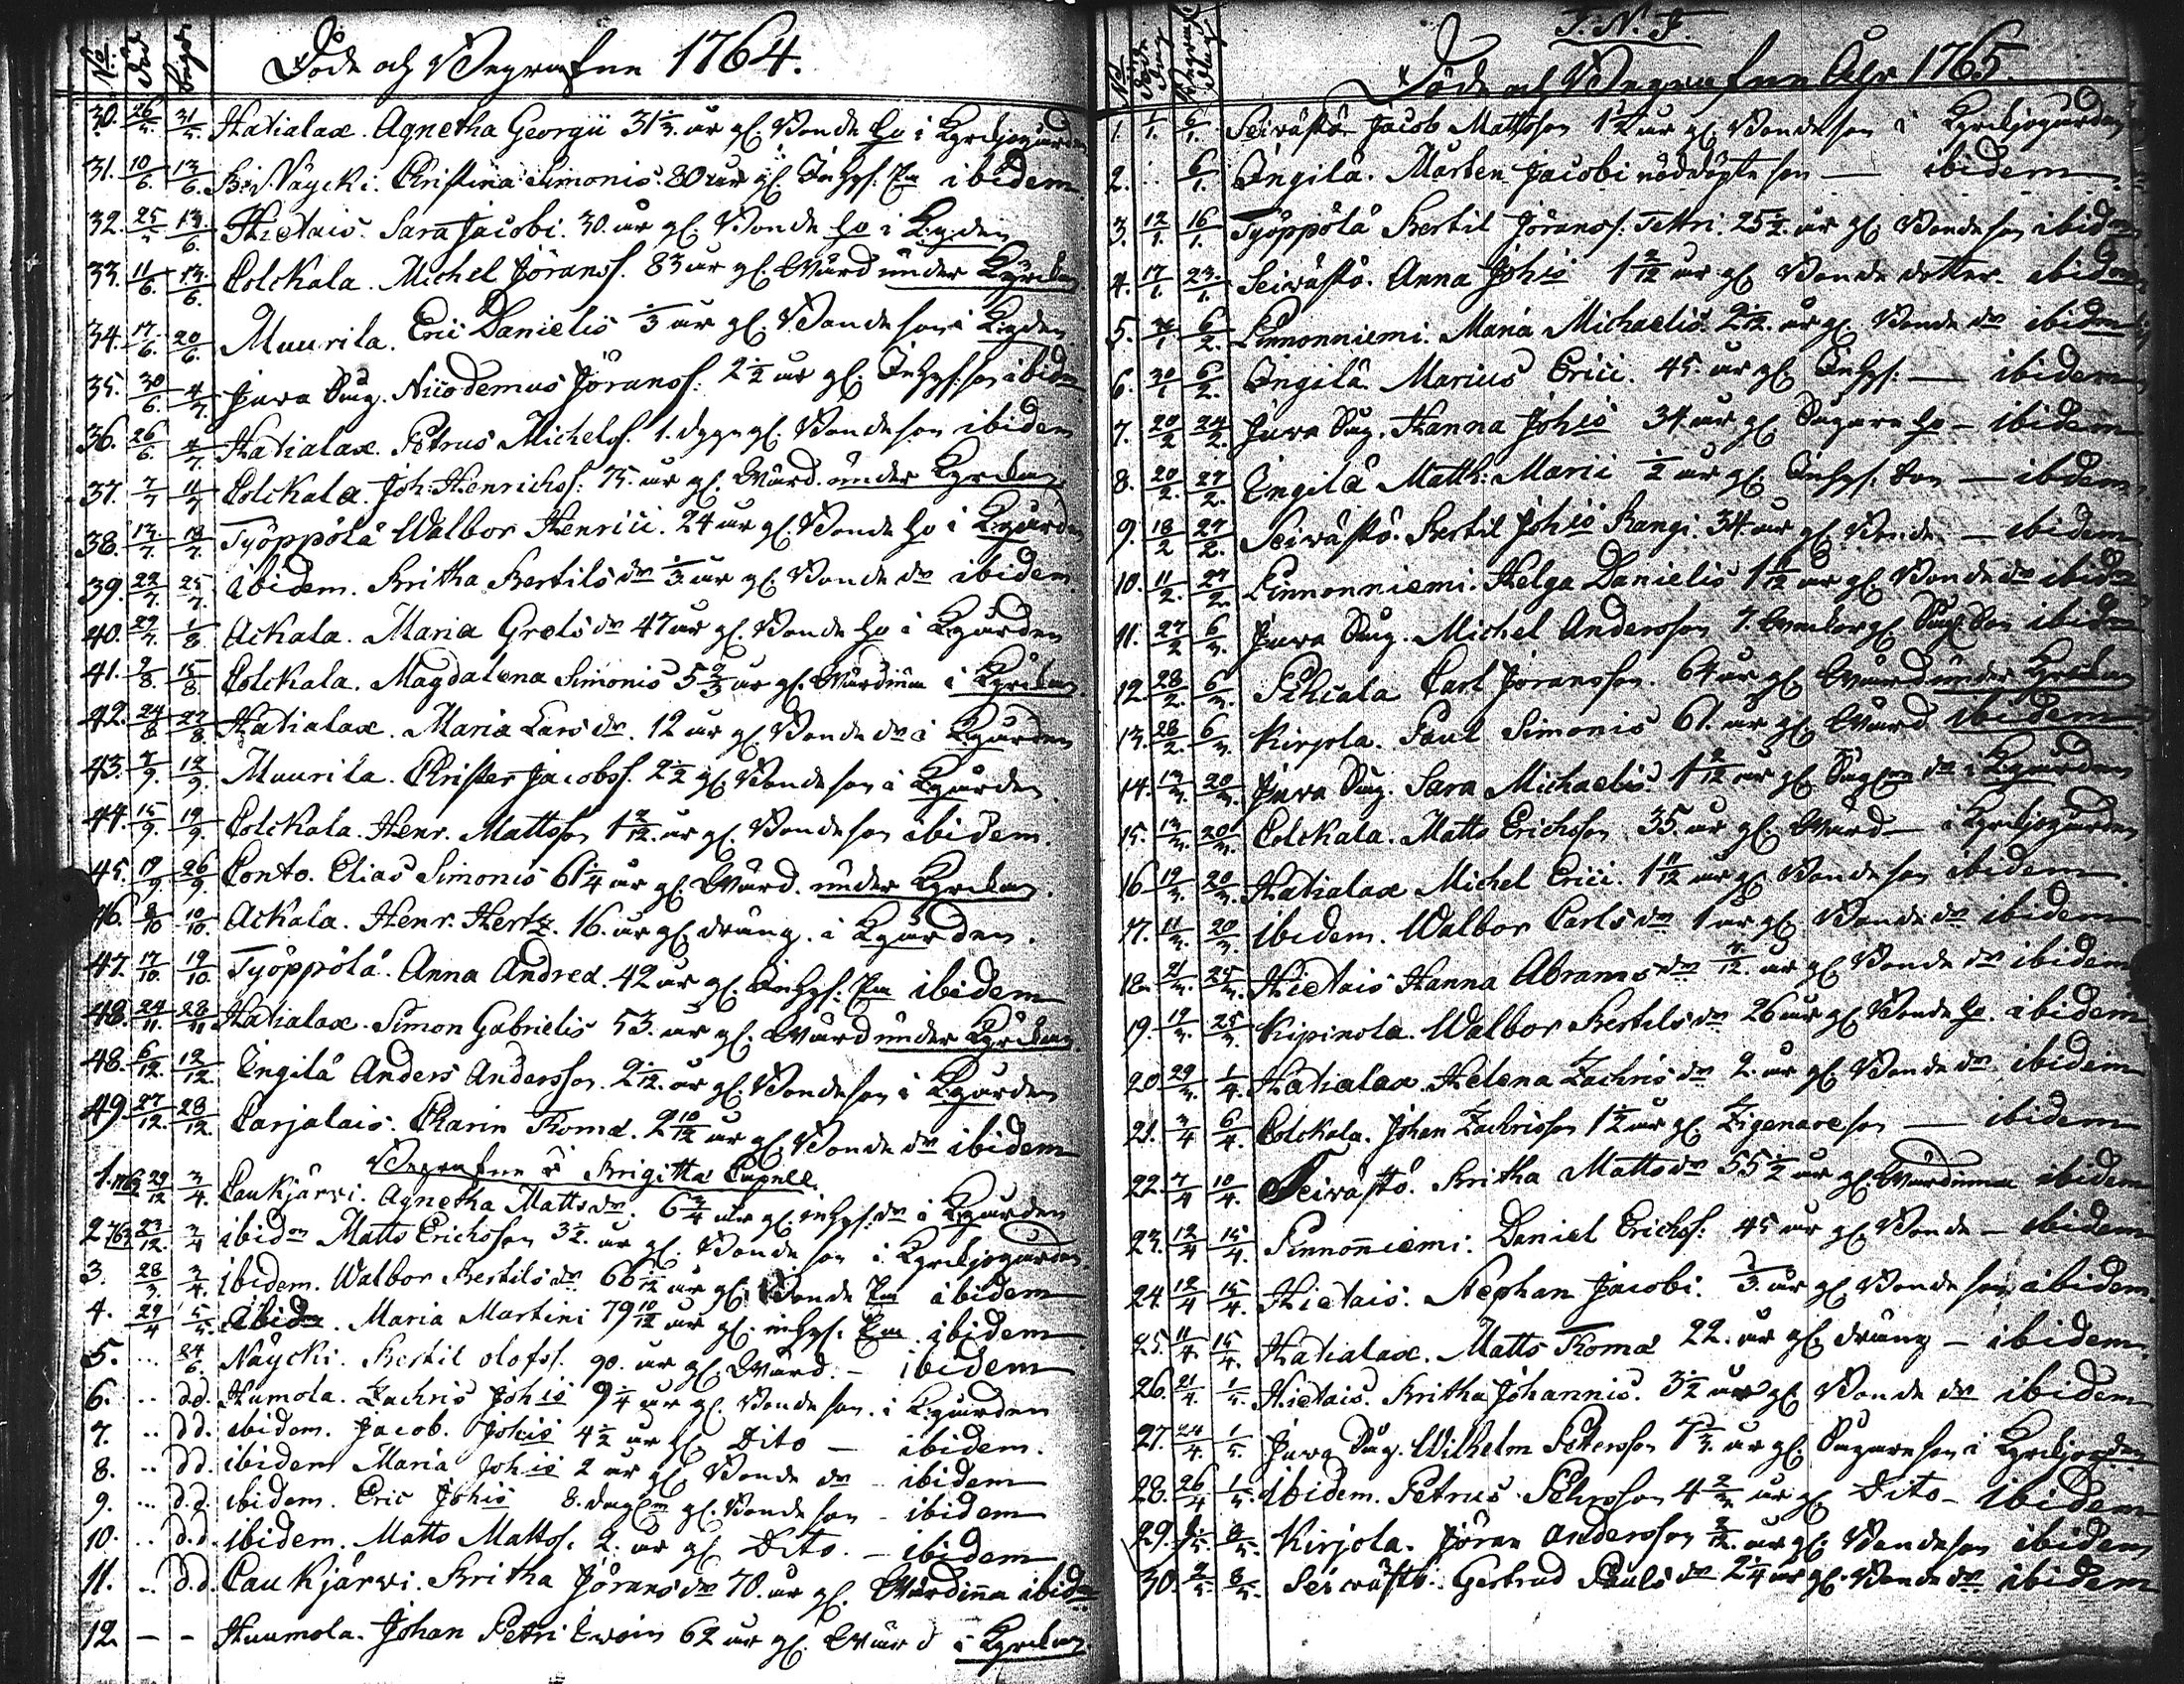 No Död begr. Döde och Begrafne 1764.
30. 26/5. 31/5. Hatialax. Agnetha Georgii 31 1/3. år gl. Bonde ho i Kyrckjogården
31. 10/6. 13/6. Näycki. Christina Simonis. 80 år gl. Inhys. Enk. ibidem
32. 25/5. 13/6. Hietais. Sara Jacobi. 30. år gl. Bonde ho i K:g:den
33. 11/6. 13/6. Colckala. Michel Jöranss. 83 år gl. Wärd under Kyrckan
34. 17/6. 20/6. Muurila. Eric Danielis 1/3 år gl. Bonde son i K:gden
35. 30/6. 4/7. Jnra Sag. Nicodemus Jöranss. 2 1/2 år gl. Inhys: son ibidem
36. 26/6. 4/7. Hatialax. Petrus Michelss. 1. dygn gl. Bonde son ibidem
37. 7/7 11/7 Colckala. Joh: Henrichss. 75. år gl. Wärd. under Kyrckan
38. 13/7. 18/7. Työppölä Walbor Henrici. 24 år gl. Bonde ho i K:gården
39. 22/7. 25/7. ibidem. Britha Bertils dr 1/3 år gl. Bonde dr ibidem
40. 29/7. 1/8 Ackala. Maria Grels dr 47 år gl. Bonde ho i K:gården
41. 9/8. 15/8. Colckala. Magdalena Simonis 5 2/3 år gl. Wärdinna i Kyrckan
42. 24/8 27/8. Hatialax. Maria Lars dr. 12 år gl. Bonde dr i K:gården
43. 7/9. 12/9. Muurila. Christer Jacobss. 2 1/2 gl. Bonde son i K:gården
44. 15/9. 19/9. Colckala. Henr. Mattsson 1 2/12. år gl. Bonde son ibidem.
45. 19/9. 26/9. Conto. Elias Simonis 61 1/4 år gl. Wärd. under Kyrckan.
46. 8/10 10/10. Ackala. Henr. Hertz. 16. år gl. dräng. i K:gården.
47. 17/10. 19/10 Työppölä. Anna Andreæ. 42 år gl. Inhys: Enk. ibidem
48. 24/11. 28/11. Hatialax. Simon Gabrielis 53. år gl. Wärd under Kyrckan.
48. 6/12. 12/12. Engilä Anders Andersson. 2 1/12. år gl. Bonde son i K:gården
49. 27/12. 28/12. Carjalais. Charin Thomæ. 2 10/12 år gl. Bonde dr ibidem
Begrafne i Brigitta Capell.
1. 1763 29/12 3/4. Caukjärwi. Agnetha Matts dr. 6 3/4 år gl. inhys. dr i K:gården
2 763 27/12. 3/4 ibidem Matts Erichsson 3 1/2. år gl. Bonde son i Kyrckjogården.
3. 28/3. 3/4. ibidem. Walbor Bertils dr 66 1/12 år gl. Bonde Enk. ibidem
4. 29/4 5/5. ibidem. Maria Martini 79 10/12 år gl. inhys. Enk. ibidem
5. ... 24/6. Näycki. Bertil Olofss. 90. år gl. Wärd. - ibidem
6. .. d.d. Humola. Zachris Johis 9 1/4 år gl. Bonde son. i K:gården
7. .. d d. ibidem. Jacob. Johis 4 1/2 år gl. Dito - ibidem.
8. .. d d. ibidem Maria Johis 2 år gl. Bonde dr ibidem
9. ... d.d. ibidem. Eric Johis 8. dagar gl. Bonde son - ibidem
10. .. d.d. ibidem. Matts Mattss. 2. år gl. Dito. - ibidem
11. .. d.d. Caukjärwi. Britha Jörans dr 70. år gl. Wärdinna ibidem
12. - - Huumola. Johan Petri 62 år gl. Wärd i Kyrckan
J. N. J.
No Döde dag Begrafne dag Döde och Begrafne Åhr 1765.
1. 1/1. 6/1. Seiwästö Jacob Mattsson 1 1/2 år gl. Bonde son i Kyrckjogården
2. .. 6/1. Ingilä. Mårten Jacobi nöddöpte son - ibidem
3. 12/1. 16/1. Työppölä Bertil Jöranss: Tettri. 25 1/2. år gl. Bonde son ibidem
4. 17/1. 23/1. Seiwästö. Anna Johis 1 2/12 år gl. Bonde dotter. ibidem
5. 6/2. Pinnonniemi. Maria Michaelis. 2 1/12. år gl. Bonde dr ibidem
6. 30/1 6/2. Ingilä. Marius Erici. 45. år gl. Inhys: - ibidem
7. 20/2 24/2. Jnra Sag. Hanna Johis 34 år gl. Sagare ho - ibidem
8. 20/2. 27/2. Engilä Matth: Marii 1/2 år gl. Inhys. son - ibidem
9. 18/2 27/2. Seiwästö. Bertil Johis Rangi. 34. år gl. Bonde - ibidem
10. 11/2. 27/2. Pinnonniemi. Helga Danielis 1 1/12 år gl. Bonde dr ibidem
11. 27/2 6/3. Jnra Sag. Michel Andersson 7. weckor gl. Sag: son ibidem
12. 28/2. 6/3. Pihcala Carl Jöransson. 64 år gl. Wärd under Kyrckan
13. 28/2. 6/3. Kirjola. Paul Simonis 61. år gl. Wärd. ibidem
14. 13/3. 20/3. Jnra Sag. Sara Michaelis. 1 2/12 år gl. dr i K:gården
15. 13/3. 20/3. Colckala. Matts Erichsson 35. år gl. Wärd - i Kyrckjogården
16 19/3. 20/3. Hatialax Michel Erici. 1 11/12 år gl. Bonde son ibidem.
17. 11/3. 20/3. ibidem. Walbor Carls dr 1 år gl. Bonde dr ibidem
18. 21/3. 25/3. Hietais Hanna Abrams dr 7/12. år gl. Bonde dr ibidem
19. 19/3. 25/3. Kipinola. Walbor Bertils dr 26 år gl. Bonde ho. ibidem
20. 29/3. 1/4. Hatialax. Helena Zachris dr 2. år gl. Bonde dr ibidem
21. 3/4 6/4. Colckala. Johan Zachrisson 1 1/2 år gl. Zigenare son - ibidem
22. 7/4 10/4. Seiwästö. Britha Matts dr 55 1/2 år gl. Wärdinna ibidem
23. 12/4 15/4. Pinnonniemi. Daniel Erichss: 45 år gl. Bonde - ibidem
24. 12/4 15/4. Hietais. Stephan Jacobi. 1/3. år gl. Bonde son ibidem.
25. 11/4. 15/4. Hatialax. Matts Thomæ 22. år gl. dräng - ibidem.
26. 21/4. 1/5. Hietais. Britha Johannis. 3 1/2 år gl. Bonde dr ibidem
27. 24/4. 1/5. Jnra Sag. Wilhelm Pettersson 7 2/3. år gl. Sagare son i Kyrckjogården
28. 26/4 1/5. ibidem. Petrus Pehrsson 4 2/3 år gl. Dito - ibidem
29. 8/5. Kirjola. Jöran Andersson 2/12. år gl. Bonde son ibidem
30. 2/5. 8/5. Seiwästö. Gertrud Pauls dr 2 1/4 år gl. Bonde dr ibidem